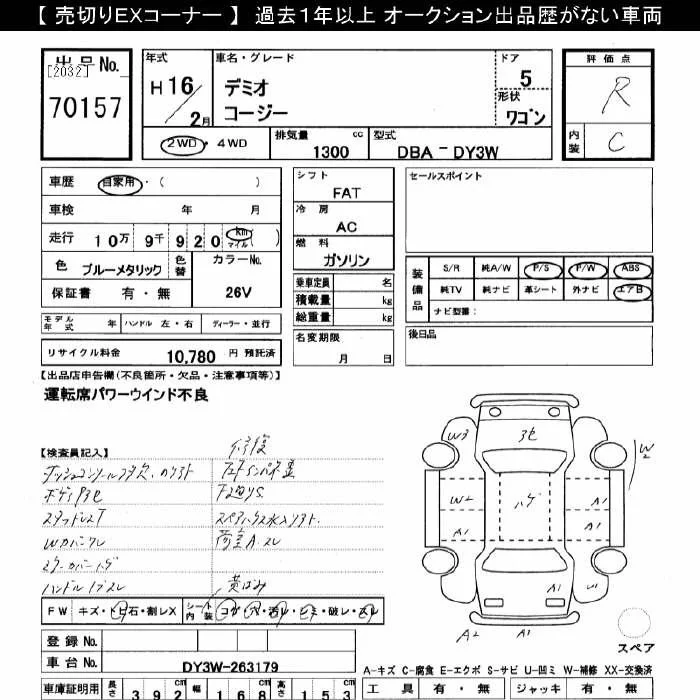 【 売切りEXコーナー 】 過去1年以上 オークション出品歴がない車両
出品 No.
[2032]
70157
年式
H 16 / 2月
車名・グレード
デミオ
コージー
ドア
5
形状
ワゴン
評価点
R
内装
C
2WD ・ 4WD
排気量 cc
1300
型式
DBA - DY3W
車歴 自家用・( )
車検 年 月
走行 10万 9千 920 km マイル ( )
色 ブルーメタリック 色替
カラーNo.
26V
保証書 有・無
モデル年式 年 ハンドル 左・右 ディーラー・並行
リサイクル料金 10,780 円 預託済
シフト
FAT
冷房
AC
燃料
ガソリン
乗車定員 名
積載量 kg
総重量 kg
名変期限
月 日
セールスポイント
装備品
S/R 純A/W P/S P/W ABS
純TV 純ナビ 革シート 外ナビ エアB
ナビ型番:
後日品
【出品店申告欄(不良箇所・欠品・注意事項等)】
運転席パワーウインド不良
【検査員記入】
修復
Wカバーワレ
荷室A.スレ
黄ばみ
FW キズ・トビ石・割レX
シート内装 コゲ・穴・汚レ・シミ・破レ・スレ
登録 No.
車台 No. DY3W-263179
車庫証明用 長さ 392 cm 幅 168 cm 高さ 153 cm
W3
3セ
W2
W2
ハゲ
A1
A1
A1
A1
U1
A2
A1
スペア
A-キズ C-腐食 E-エクボ S-サビ U-凹ミ W-補修 XX-交換済
工具 有・無 ジャッキ 有・無